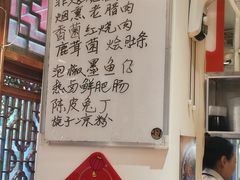 烟熏老腊肉
香菌红烧肉
鹿茸菌烩肚条
泡椒墨鱼仔
泰卤鲜肥肠
陈皮兔丁
旋子凉粉